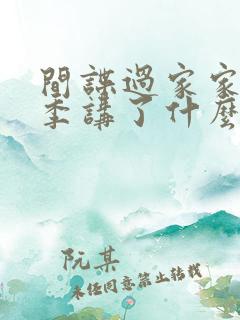 間諜過家家
季講了什麼
阮某
未经同意禁止转载